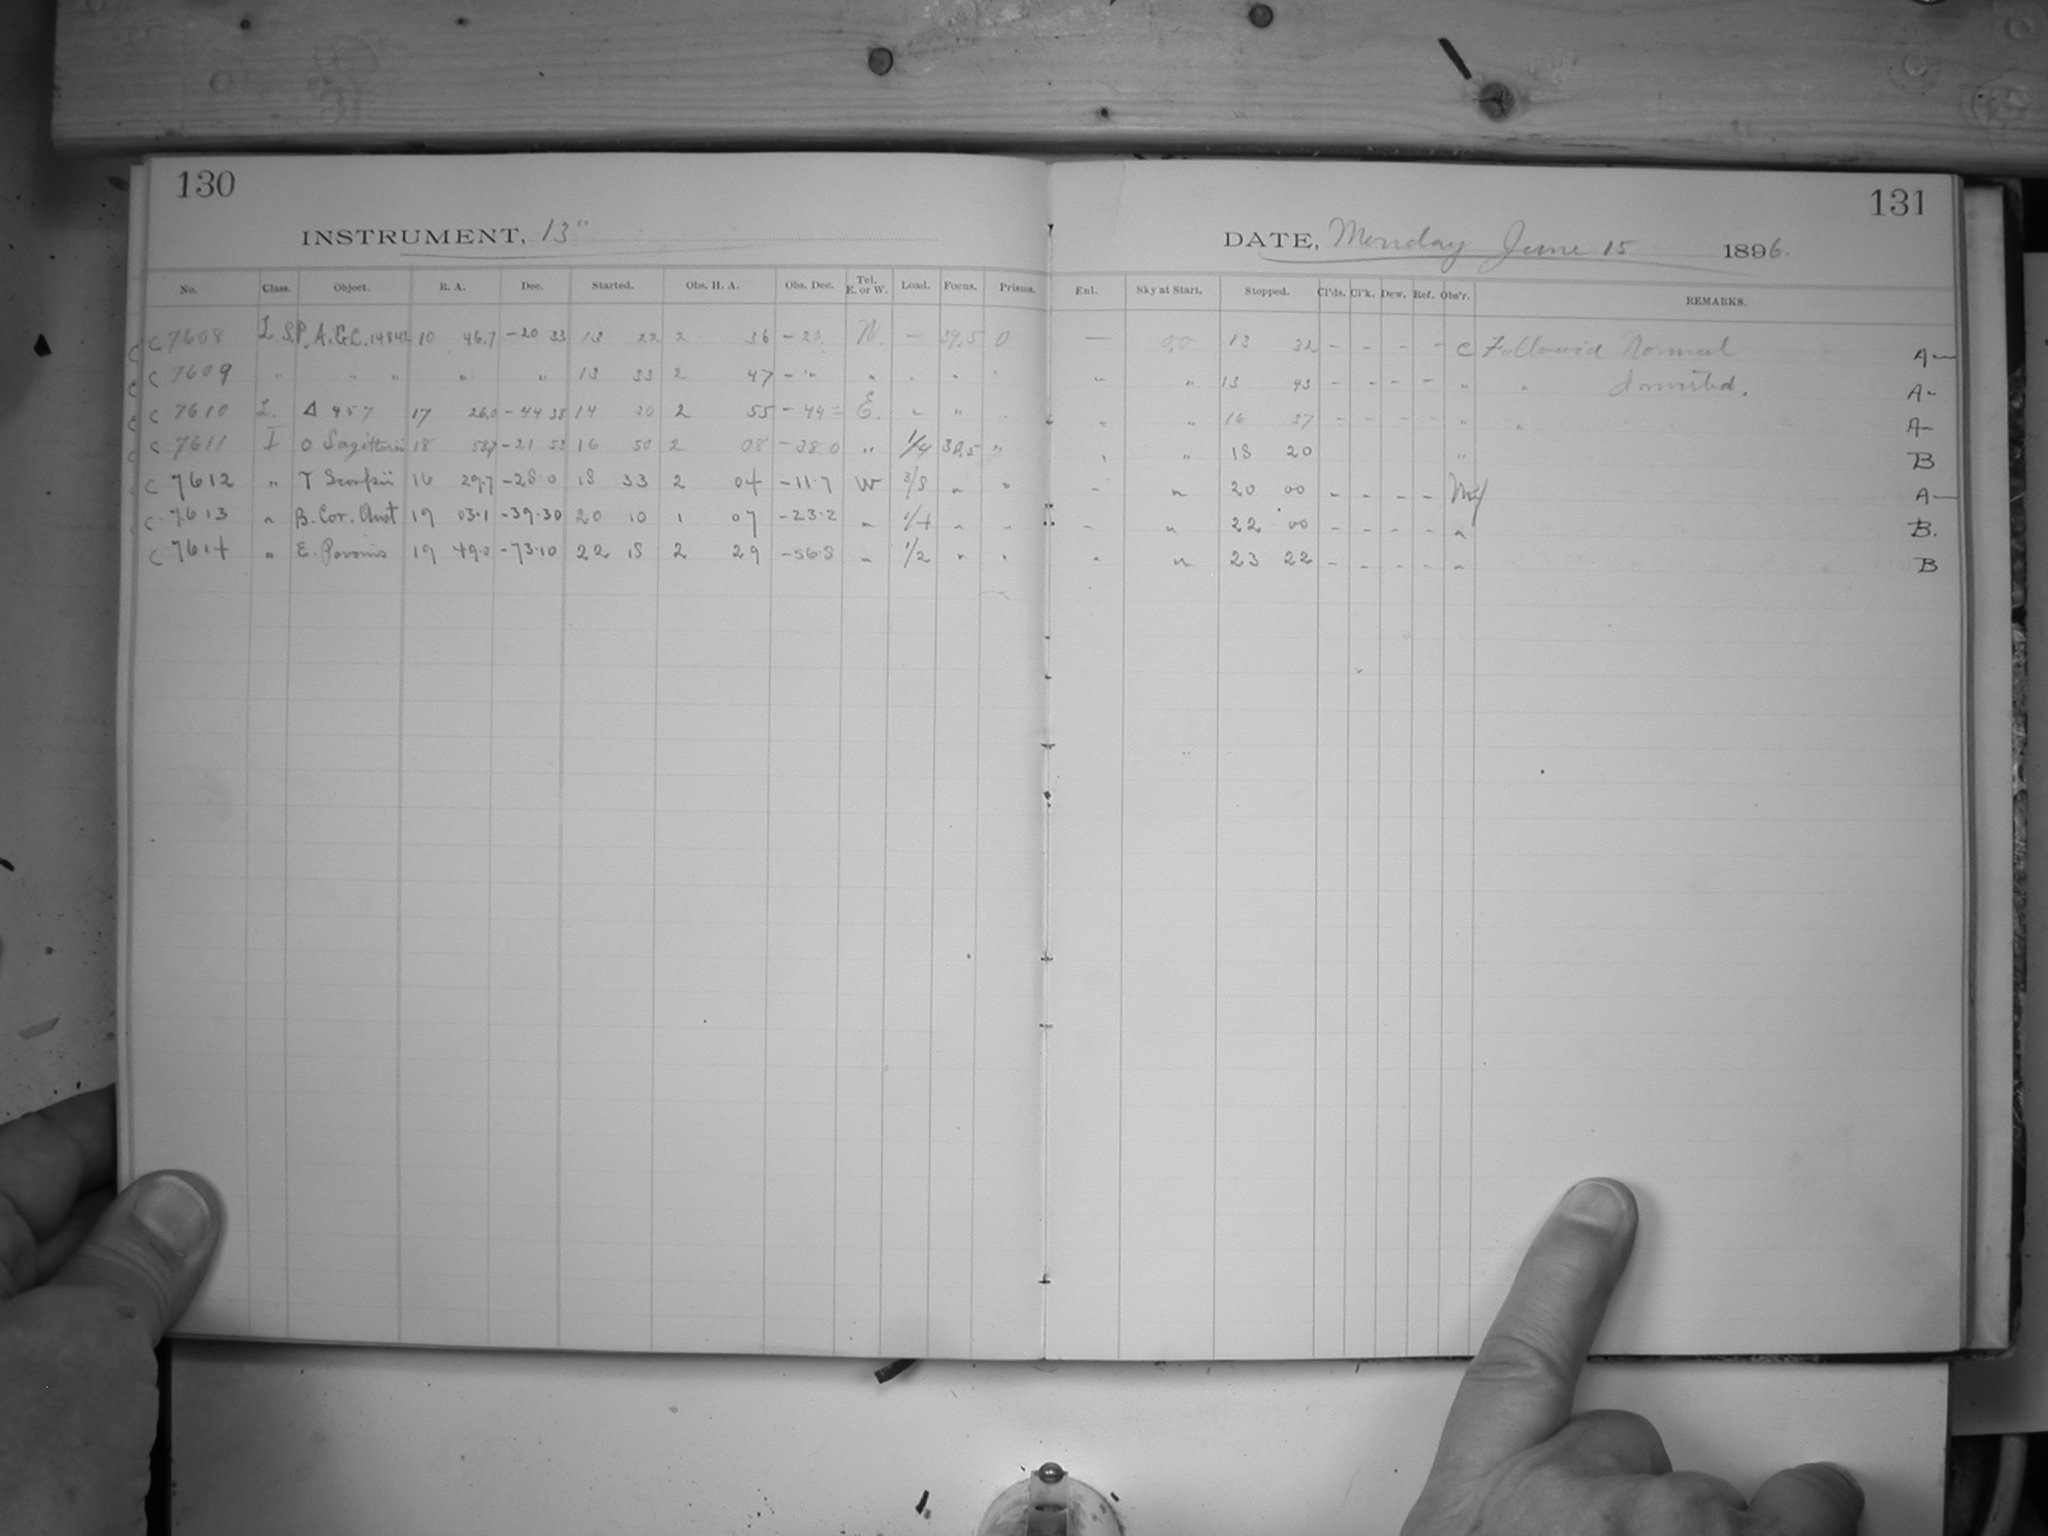 130
INSTRUMENT, 13"
No. Class. Object. R. A. Dec. Started. Obs. H. A. Obs. Dec. Tel. E. or W. Load. Focus. Prisms.
C 7608 I.S.P. A.G.C. 14842 10 46.7 -20 33 13 22 2 36 -20 W. — 39.5 0
C 7609 " " " " " 13 33 2 47 - " " " " "
C 7610 I. Δ 457 17 26.0 -44 38 14 2 55 -44 E. " "
C 7611 I O Sagittarii 18 58.7 -21 53 16 50 2 08 -38.0 " 1/4 39.5 "
C 7612 " T Scorpii 16 29.7 -28.0 18 33 2 04 -11.7 W 3/8 " "
C 7613 " B. Cor. Aust 19 03.1 -39.30 20 10 1 07 -23.2 " 1/4 " "
C 7614 " E. Pavonis 19 49.0 -73.10 22 18 2 29 -56.8 " 1/2 " "
131
DATE, Monday June 15 1896.
Enl. Sky at Start. Stopped. Cl'ds. Cl'k. Dew. Ref. Obs'r. REMARKS.
— 0,0 13 32 - - - - C Followed Normal A—
" " 13 43 - - - - " " Inverted. A-
" " 16 37 - - - - " " A-
" " 18 20 " B
" " 20 00 - - - - A—
" " 22 00 - - - - " B.
" " 23 22 - - - - " B